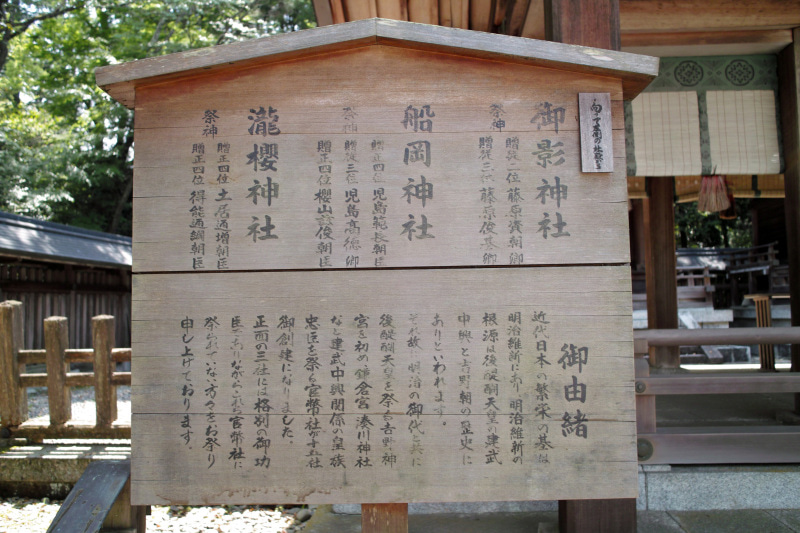 向って右側の社殿から
御影神社
祭神
贈従二位藤原資朝卿
贈従三位藤原俊基卿
船岡神社
祭神
贈正四位児島範長朝臣
贈従三位児島高徳卿
贈正四位櫻山茲俊朝臣
瀧櫻神社
祭神
贈正四位土居通増朝臣
贈正四位得能通綱朝臣
御由緒
近代日本の繁栄の基は
明治維新にあり明治維新の
根源は後醍醐天皇の建武
中興と吉野朝の歴史に
ありといわれます。
それ故に明治の御代と共に
後醍醐天皇を祭る吉野神
宮を初め鎌倉宮湊川神社
など建武中興関係の皇族
忠臣を祭る官幣社が十五社
御創建になりました。
正面の三社には格別の御功
臣でありながらこれら官幣社に
祭られていない方々をお祭り
申し上げております。